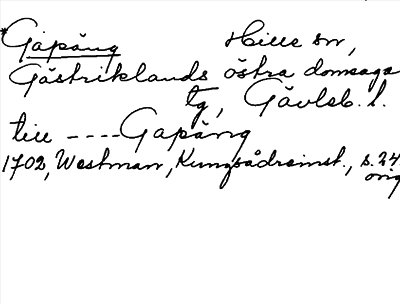 *Gapäng Hille sn,
Gästriklands östra domsaga
tg, Gävleb. l.
till ----Gapäng
1702, Westman, Kungsådreinst., s. 24
orig